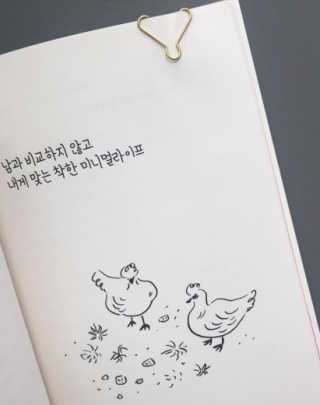 남과 비교하지 않고
내게 맞는 착한 미니멀라이프